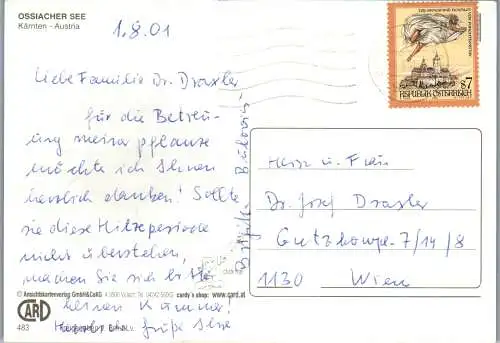 OSSIACHER SEE
Kärnten - Austria
1.8.01
Liebe Familie Dr. Draxler
für die Betreu-
ung meiner Pflanze
möchte ich Ihnen
herzlich danken! Sollte
sie diese Hitzeperiode
nicht überstehen,
machen Sie sich bitte
keinen Kummer!
Grüße Ihre
REPUBLIK ÖSTERREICH
S 7
Herr u. Frau
Dr. Josef Draxler
7/14/8
1130 Wien
© Ansichtskartenverlag GmbH&CoKG
cardy's shop: www.card.at
CARD
483